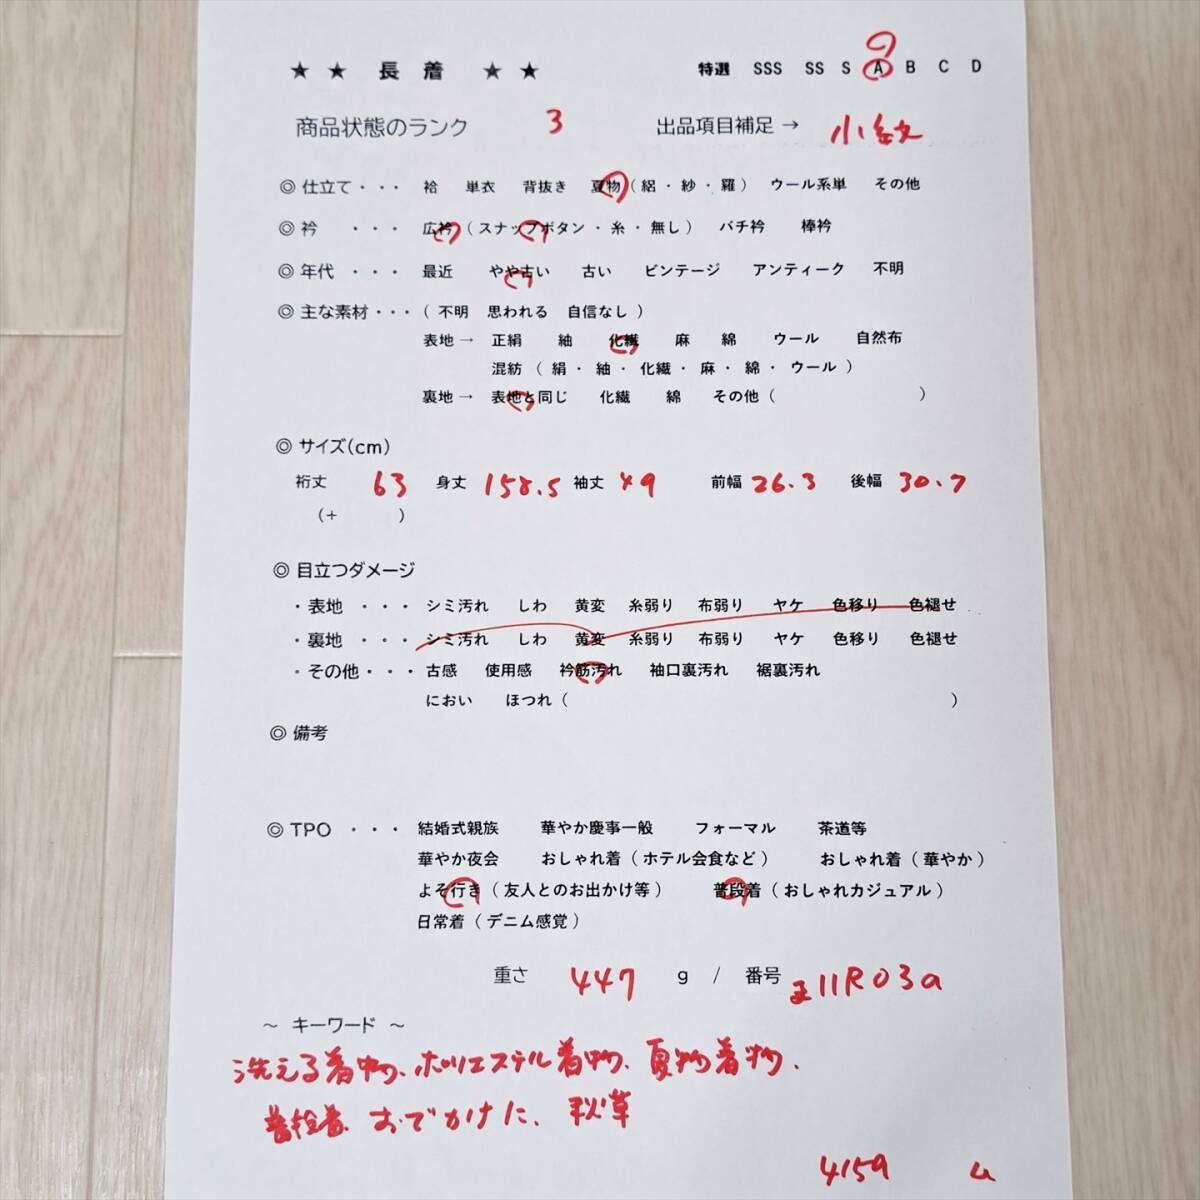 ★ ★ 長 着 ★ ★ 特選 SSS SS S A B C D
商品状態のランク 3 出品項目補足 → 小紋
◎ 仕立て・・・ 袷 単衣 背抜き 夏物（ 絽 ・ 紗 ・ 羅 ） ウール系単 その他
◎ 衿 ・・・ 広衿（ スナップボタン ・ 糸 ・ 無し ） バチ衿 棒衿
◎ 年代 ・・・ 最近 やや古い 古い ビンテージ アンティーク 不明
◎ 主な素材・・・（ 不明 思われる 自信なし ）
表地 → 正絹 紬 化繊 麻 綿 ウール 自然布
混紡 （ 絹 ・ 紬 ・ 化繊 ・ 麻 ・ 綿 ・ ウール ）
裏地 → 表地と同じ 化繊 綿 その他（ ）
◎ サイズ（cm）
裄丈 63 身丈 158.5 袖丈 49 前幅 26.3 後幅 30.7
（+ ）
◎ 目立つダメージ
・表地 ・・・ シミ汚れ しわ 黄変 糸弱り 布弱り ヤケ 色移り 色褪せ
・裏地 ・・・ シミ汚れ しわ 黄変 糸弱り 布弱り ヤケ 色移り 色褪せ
・その他・・・ 古感 使用感 衿筋汚れ 袖口裏汚れ 裾裏汚れ
におい ほつれ（ ）
◎ 備考
◎ TPO ・・・ 結婚式親族 華やか慶事一般 フォーマル 茶道等
華やか夜会 おしゃれ着（ ホテル会食など ） おしゃれ着（ 華やか ）
よそ行き（ 友人とのお出かけ等 ） 普段着（ おしゃれカジュアル ）
日常着（ デニム感覚 ）
重さ 447 g / 番号 11R03a
～ キーワード ～
洗える着物、ポリエステル着物、夏物着物、
普段着、おでかけに、秋草
4159